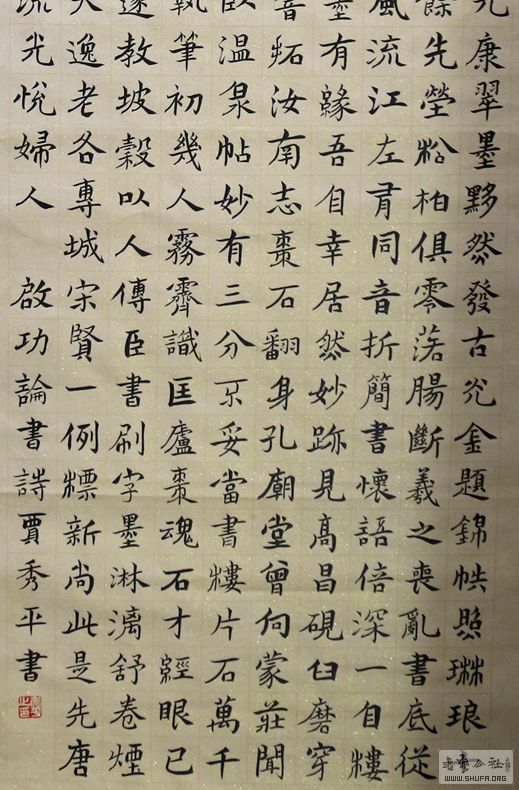 康翠墨黟然發古光金題錦帙照琳琅
餘先塋松柏俱零落腸斷羲之喪亂書底從
風流江左有同音折簡書懷語倍深一自樓
墨有緣吾自幸居然妙跡見高昌硯臼磨穿
拓汝南志棗石翻身孔廟堂曾向蒙莊聞
臥溫泉帖妙有三分不妥當書樓片石萬千
執筆初幾人霧霽識匡廬棗魂石才經眼已
遂教坡穀以人傳臣書刷字墨淋漓舒卷煙
逸老各專城宋賢一例標新尚此是先唐
流光悅婦人 啟功論書詩賈秀平書
WWW.SHUFA.ORG